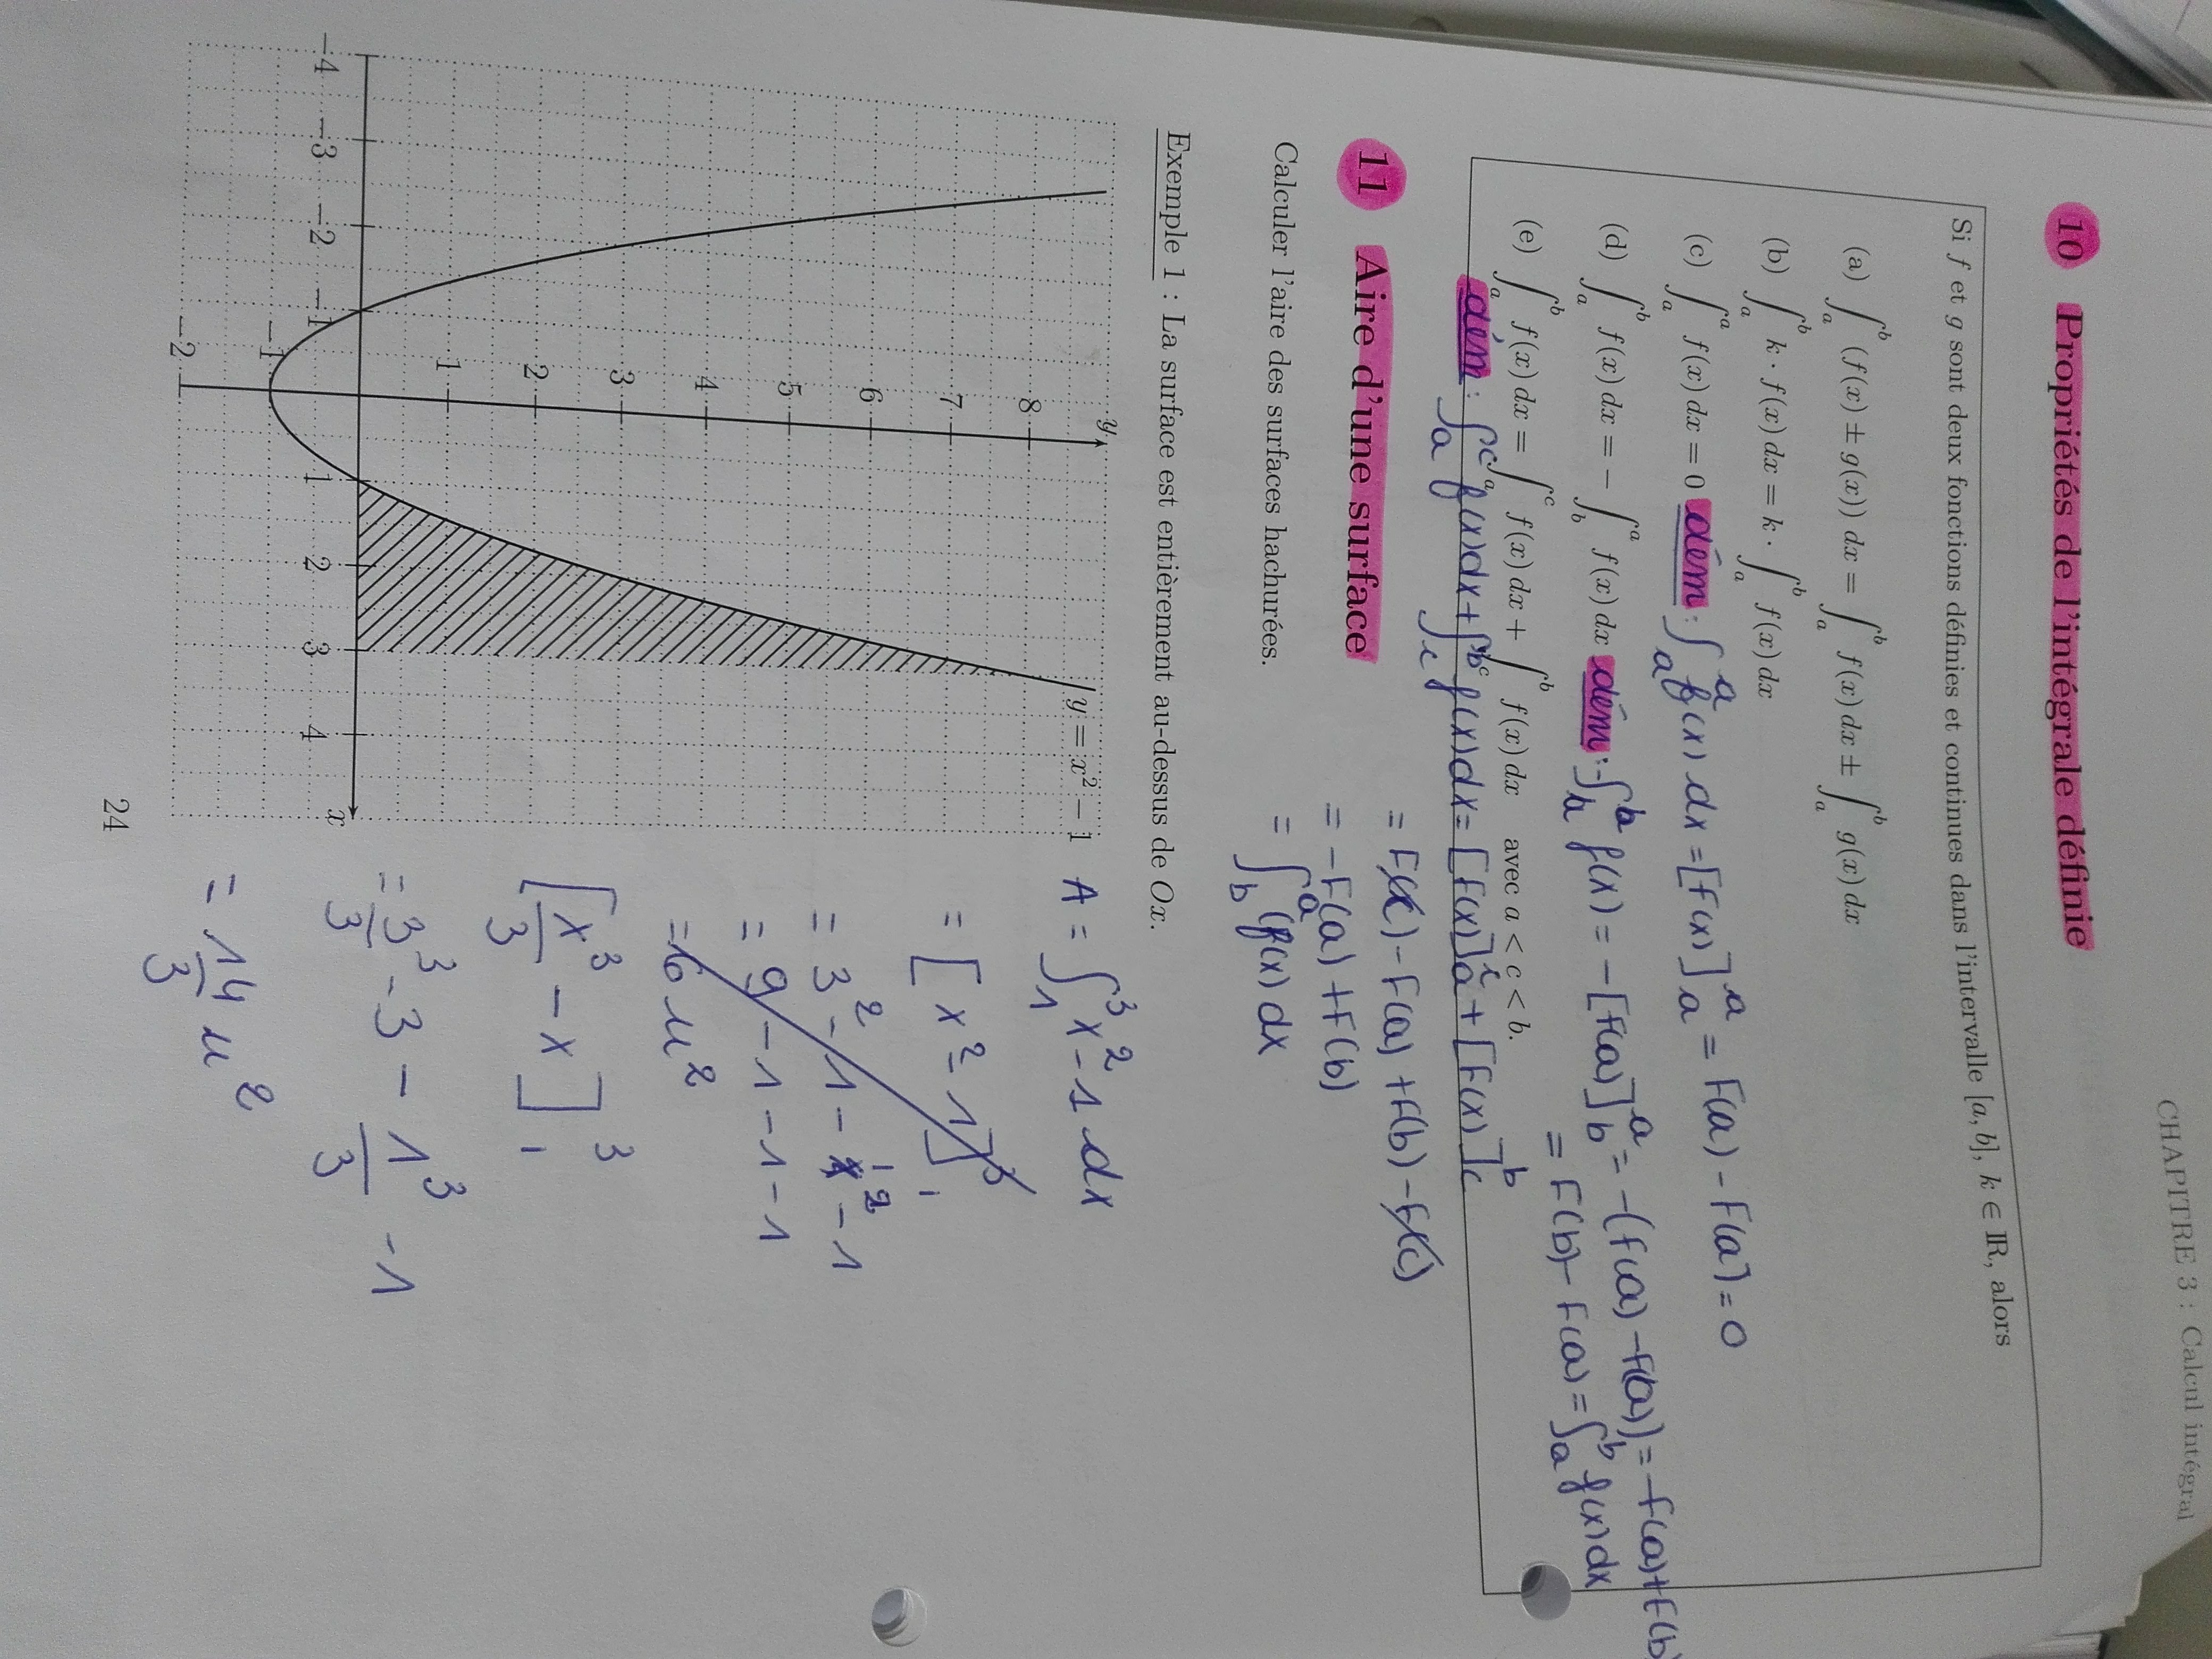 CHAPITRE 3 : Calcul intégral
10 Propriétés de l'intégrale définie
Si f et g sont deux fonctions définies et continues dans l'intervalle [a, b], k ∈ ℝ, alors
(a) ∫_a^b (f(x) ± g(x)) dx = ∫_a^b f(x) dx ± ∫_a^b g(x) dx
(b) ∫_a^b k · f(x) dx = k · ∫_a^b f(x) dx
(c) ∫_a^a f(x) dx = 0 dém : ∫_a^a f(x) dx = [F(x)]_a^a = F(a) - F(a) = 0
(d) ∫_a^b f(x) dx = − ∫_b^a f(x) dx dém : -∫ f(x) = -[F(a)]_b^a = -(F(a) - F(b)) = -F(a) + F(b)
= F(b) - F(a) = ∫_a^b f(x) dx
(e) ∫_a^b f(x) dx = ∫_a^c f(x) dx + ∫_c^b f(x) dx avec a < c < b.
dém : ∫_a^c f(x) dx + ∫_c^b f(x) dx = [F(x)]_a^c + [F(x)]_c^b
= F(c) - F(a) + F(b) - F(c)
= -F(a) + F(b)
= ∫_b^a f(x) dx
11 Aire d'une surface
Calculer l'aire des surfaces hachurées.
Exemple 1 : La surface est entièrement au-dessus de Ox.
y
8
7
6
5
4
3
2
1
−1
−2
−4 −3 −2 −1 1 2 3 4 x
y = x² − 1
A = ∫_1^3 x² - 1 dx
= [x² - 1]_1^3
= 3² - 1 - 1² - 1
= 9 - 1 - 1 - 1
= 6 u²
[x³/3 - x]_1^3
= 3³/3 - 3 - 1³/3 - 1
= 14/3 u²
24